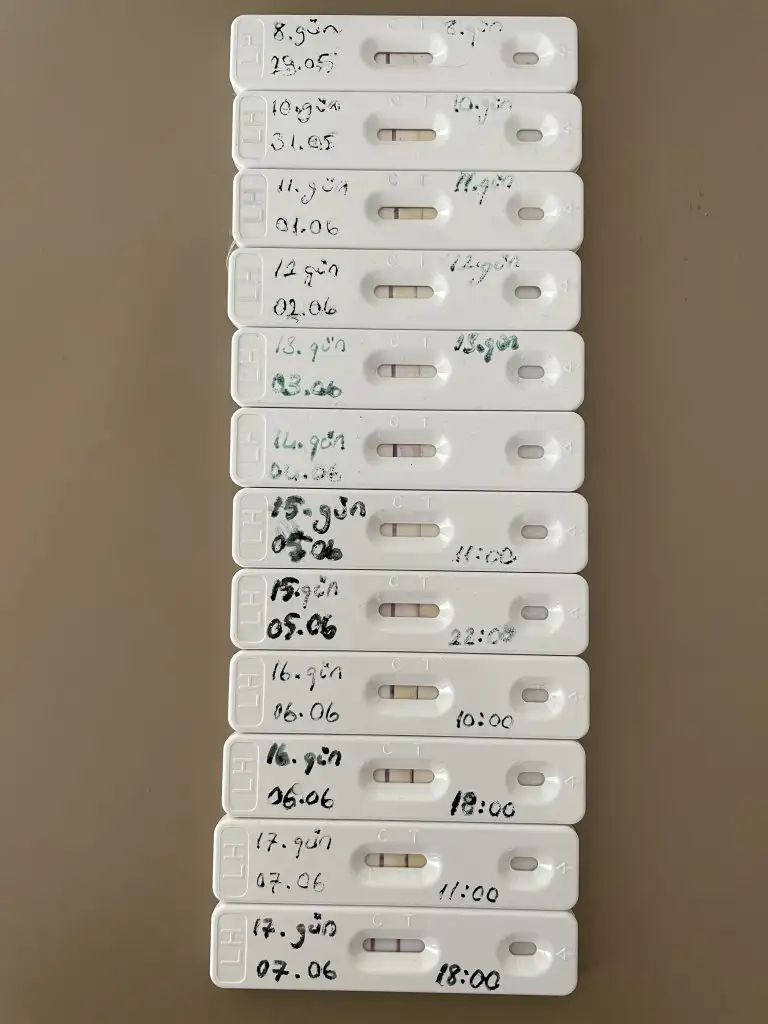 LH
8.gün
29.05
8.gün
C T
LH
10.gün
31.05
10.gün
C T
LH
11.gün
01.06
11.gün
C T
LH
12 gün
02.06
12gün
C T
LH
13.gün
03.06
13.gün
C T
LH
14.gün
04.06
C T
LH
15.gün
05.06
11:00
C T
LH
15.gün
05.06
22:00
C T
LH
16.gün
06.06
10:00
C T
LH
16.gün
06.06
18:00
C T
LH
17.gün
07.06
11:00
C T
LH
17.gün
07.06
18:00